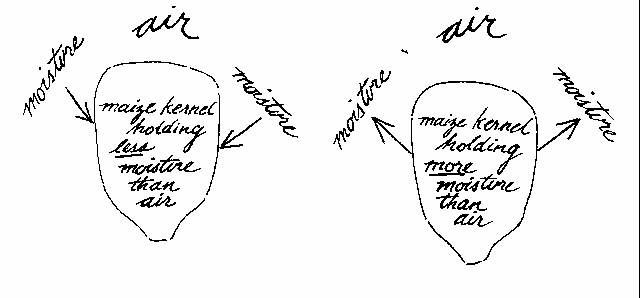 air
moisture
moisture
maize kernel
holding
less
moisture
than
air
air
moisture
moisture
maize kernel
holding
more
moisture
than
air